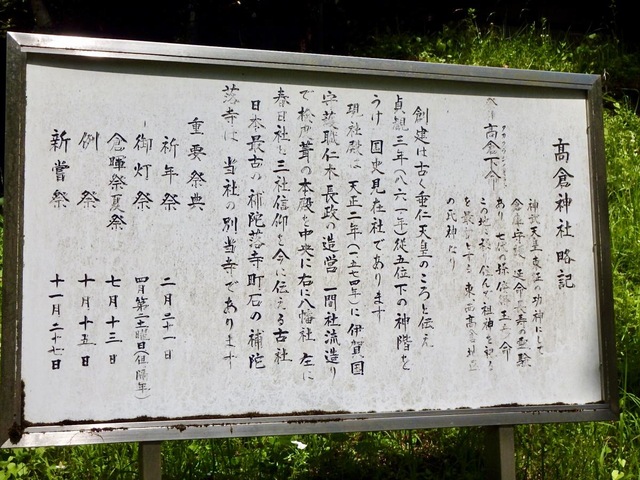 高倉神社略記
祭神 高倉下命
神武天皇東征の功神にして
倉庫守護 延命長寿の霊験
あり 七代の孫倭得玉彦命
この地に移り住んで祖神を祀る
を最初とする 東西高倉地区
の氏神なり
創建は古く垂仁天皇のころと伝え
貞観三年(八六一年)従五位下の神階を
うけ 国史見在社であります
現社殿は 天正二年(一五七四年)に伊賀国
守護職仁木長政の造営 一間社流造り
で桧皮葺の本殿を中央に右に八幡社 左に
春日社と三社信仰を今に伝える古社
日本最古の補陀落寺町石の補陀
落寺は 当社の別当寺であります
重要祭典
祈年祭 二月二十一日
御灯祭 四月第二土曜日(但 隔年)
倉暉祭夏祭 七月十三日
例祭 十月十五日
新嘗祭 十一月二十七日